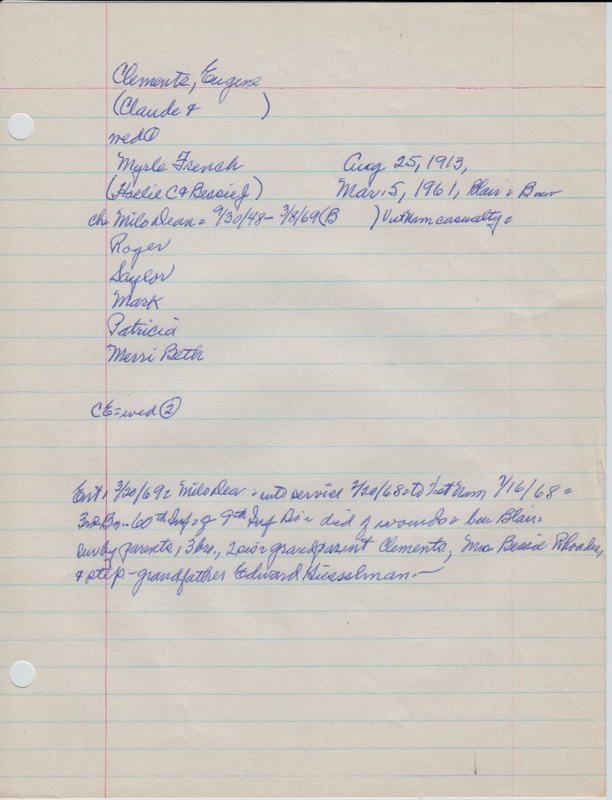 Clements, Eugene
(Claude & )
wed ①
Myrle French Aug 25, 1913,
(Hoelie C & Bessie J) Mar. 5, 1961, Blair = B
ch Milo Dean = 9/30/48 - 3/8/69 (B ) Viet Nam casualty =
Roger
Saylor
Mark
Patricia
Merri Beth
CE = wed ②
Ent. 3/20/69 = Milo Dean = into service 2/20/68 = to Viet Nam 7/16/68 =
3rd Bn - 60th Inf = of 9th Inf Div = died of wounds = bur Blair =
surv by parents, 3 bro., 2 sis = grandparent Clements, Mrs Bessie Rhoades,
& step-grandfather Edward Hiesselman -